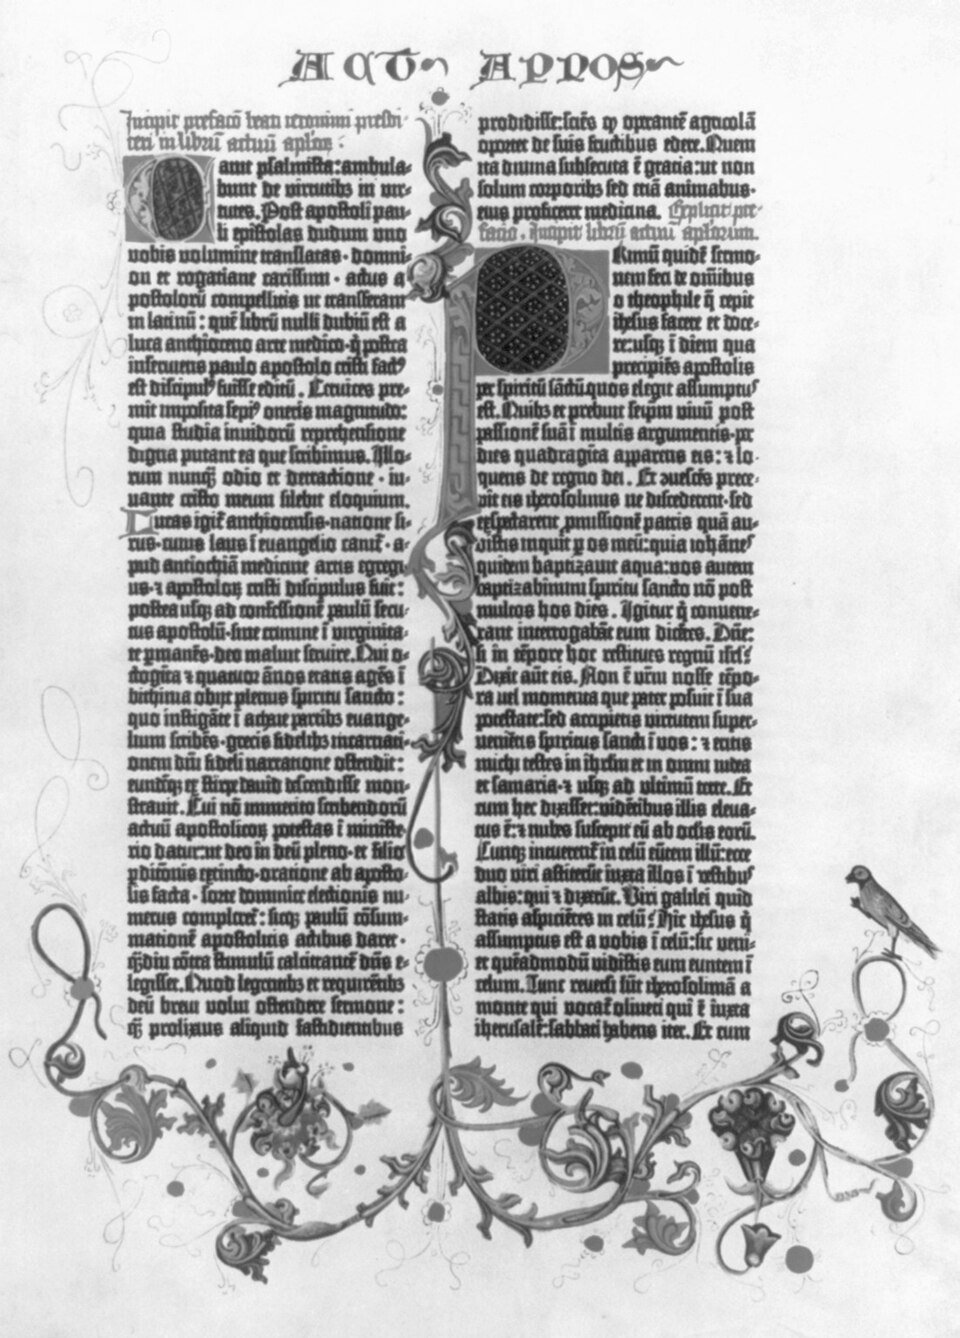 ACT' APPOS
Incipit prefacō beati ieronimi presbi-
teri in librū actuū aplōꝝ :
Canit psalmista: ambula-
bunt de virtutibꝫ in vir-
tutes. Post apostoli pau-
li epistolas dudum uno
vobis volumine translatas· domni-
on et rogatiane carissimi · actus a
postolorū compellitis ut transferam
in latinū : quē librū nulli dubiū est a
luca anthioceno arte medico· q̄ postea
inserviens paulo apostolo cristi factꝰ
est discipulꝰ fuisse editū . Cervices pre-
mit imposita sepiꝰ oneris magnitudo:
quia studia invidorū reprehensione
digna putant ea que scribimus. Illo-
rum nunqȝ odio et detractione · iu-
vante cristo meum silebit eloquium.
Lucas igit᷑ anthiocensis· natione si-
rus· cuius laus ī evangelio canit᷑ · a-
pud antiochiā medicine artis egregi
us· ⁊ apostoloꝝ cristi discipulus fuit:
postea usqꝫ ad confessionē paulū secu-
tus apostolū· sine crimine ī virginita-
te ꝑmanēs· deo maluit servire. Qui o-
ctogīta ⁊ quatuor ānos etatis agēs ī
bithinia obijt plenus spiritu sancto:
quo instigāte ī achaie partibꝫ euange-
lium scribēs· grecis fidelibꝫ incarnati-
onem dn̄i fideli narratione ostendit:
eundēqꝫ ex stirpe david descendisse mon-
stravit. Cui nō immerito scribendorū
actuū apostolicoꝝ potestas ī ministe-
rio datur: ut deo in deū pleno· et filio
ꝑdicōnis extincto· oratione ab aposto-
lis facta · sorte dominice electionis nu-
merus completet᷑: sicqꝫ paulū cōsum-
mationē apostolicis actibus daret·
quē diu cōtra stimulū calcitrantē dn̄s e-
legisset. Quod legentibꝫ et requirētibꝫ
deū brevi volui ostendere sermone:
qȝ prolixius aliquid fastidientibus
prodidisse: sciēs ꝙ operantē agricolā
oportet de suis fructibus edere. Quem
ita divina subsecuta ē gracia: ut non
solum corporibꝫ sed etiā animabus·
eius proficeret medicina. Explicit pre-
facio . Incipit librū actuū aplōrum.
Primū quidē sermo-
nem feci de om̄ibus
o theophile q̄ cepit
ihesus facere et doce-
re: usqꝫ ī diem qua
precipiēs apostolis
per spiritū sāctū quos elegit assumptꝰ
est. Quibꝫ et prebuit seipm̄ vivū post
passionē suā ī multis argumentis· per
dies quadragīta apparens eis: ⁊ lo-
quens de regno dei . Et ꝯuescēs prece-
pit eis iherosolimis ne discederent· sed
exspectarent ꝓmissionē patris quā au-
distis inquit ꝑ os meū: quia iohānes
quidem baptizavit aqua: vos autem
baptizabimini spiritu sancto nō post
multos hos dies . Igitur q̄ convene-
rant interrogabāt eum dicētes . Dn̄e:
si in tēpore hoc restitues regnū isrl̄?
Dixit aūt eis. Non ē vr̄m nosse tēpo-
ra vel momenta que pater posuit ī sua
potestate: sed accipietis virtutem super-
venientis spiritus sancti ī vos: ⁊ eritis
michi testes in ihrlm̄ et in omni iudea
et samaria· ⁊ usqꝫ ad ultimū terre. Et
cum hec dixisset: vidētibus illis eleva-
tus ē: ⁊ nubes suscepit eū ab oclis eorū.
Cunqꝫ intuerent᷑ in celū eūtem illū: ecce
duo viri astiterūt iuxta illos ī vestibꝰ
albis: qui ⁊ dixerūt. Viri galilei quid
statis aspicientes in celū? Hic ihesus q̄
assumptus est a vobis ī celū: sic veni-
et quēadmodū vidistis eum euntem ī
celum. Tunc reversi sūt iherosolimā a
monte qui vocat᷑ oliveti qui ē iuxta
iherusalē: sabbati habens iter. Et cum